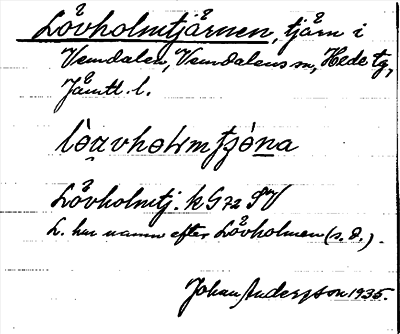 Lövholmtjärnen, tjärn i
Vemdalen, Vemdalens sn, Hede tg,
Jämtl. l.
Lövholmtj. k G72 SV
L. har namn efter Lövholmen (s. d.).
Johan Andersson 1935.